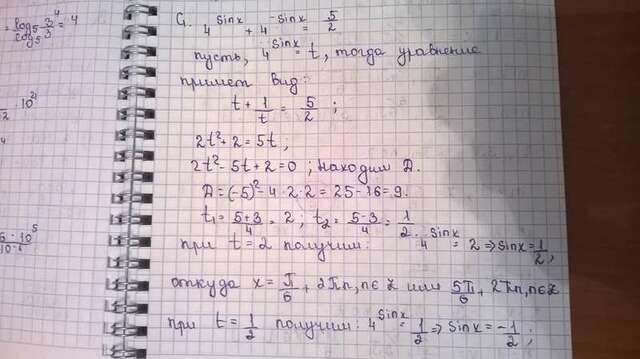 = log₅ 3⁴ / log₅ 3 = 4
2 · 10²¹
6 · 10⁵ / 10⁻⁶
С₁. 4^sinx + 4^-sinx = 5/2
пусть, 4^sinx = t, тогда уравнение
примет вид:
t + 1/t = 5/2 ;
2t² + 2 = 5t ;
2t² - 5t + 2 = 0 ; Находим D.
D = (-5)² - 4 · 2 · 2 = 25 - 16 = 9.
t₁ = 5+3/4 = 2 ; t₂ = 5-3/4 = 1/2 .
при t = 2 получим: 4^sinx = 2 ⇒ sinx = 1/2 ;
откуда x = π/6 + 2πn, n∈Z или 5π/6 + 2πn, n∈Z
при t = 1/2 получим: 4^sinx = 1/2 ⇒ sinx = -1/2 ;